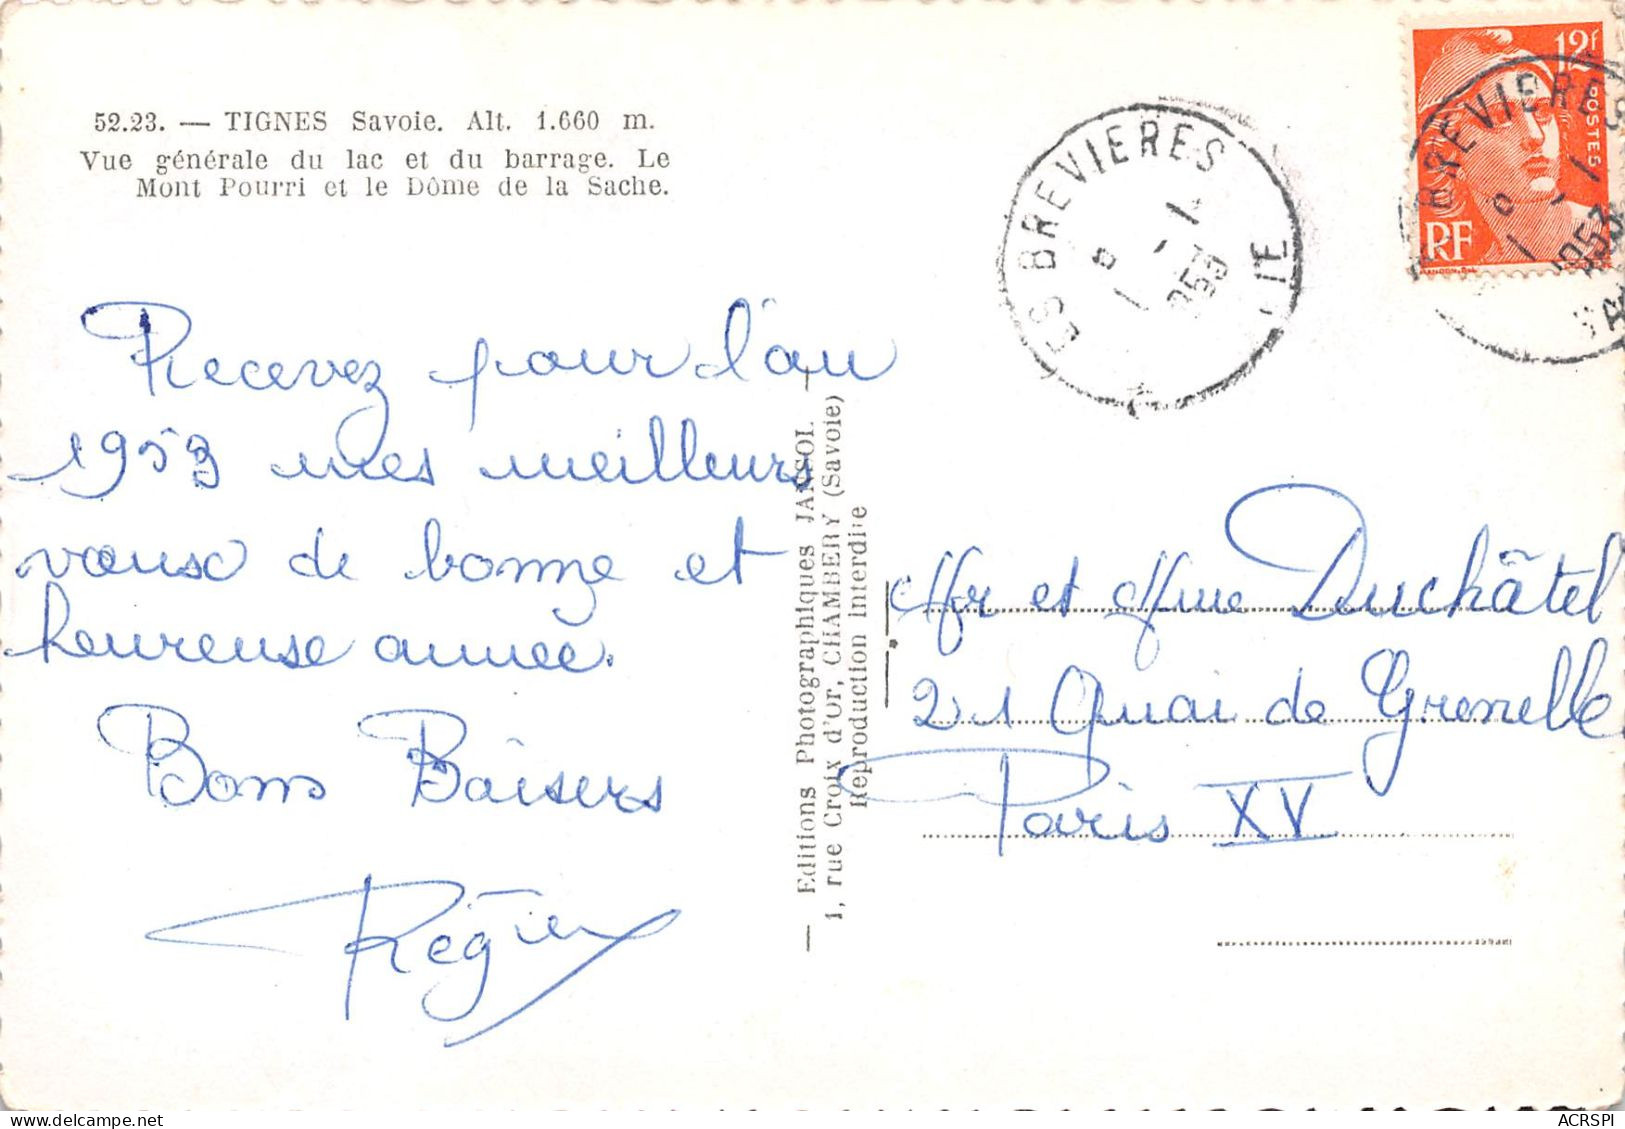 52.23. — TIGNES Savoie. Alt. 1.660 m.
Vue générale du lac et du barrage. Le
Mont Pourri et le Dôme de la Sache.
Recevez pour l'an
1953 mes meilleurs
vœux de bonne et
heureuse année.
Bons Baisers
— Editions Photographiques JANSOL —
1, rue Croix d'Or, CHAMBERY (Savoie)
Reproduction interdite
12f
POSTES
RF
LES BREVIERES
1953
BREVIERES
1953
Mr et Mme Duchâtel
21 Quai de Grenelle
Paris XV
ACRSPI